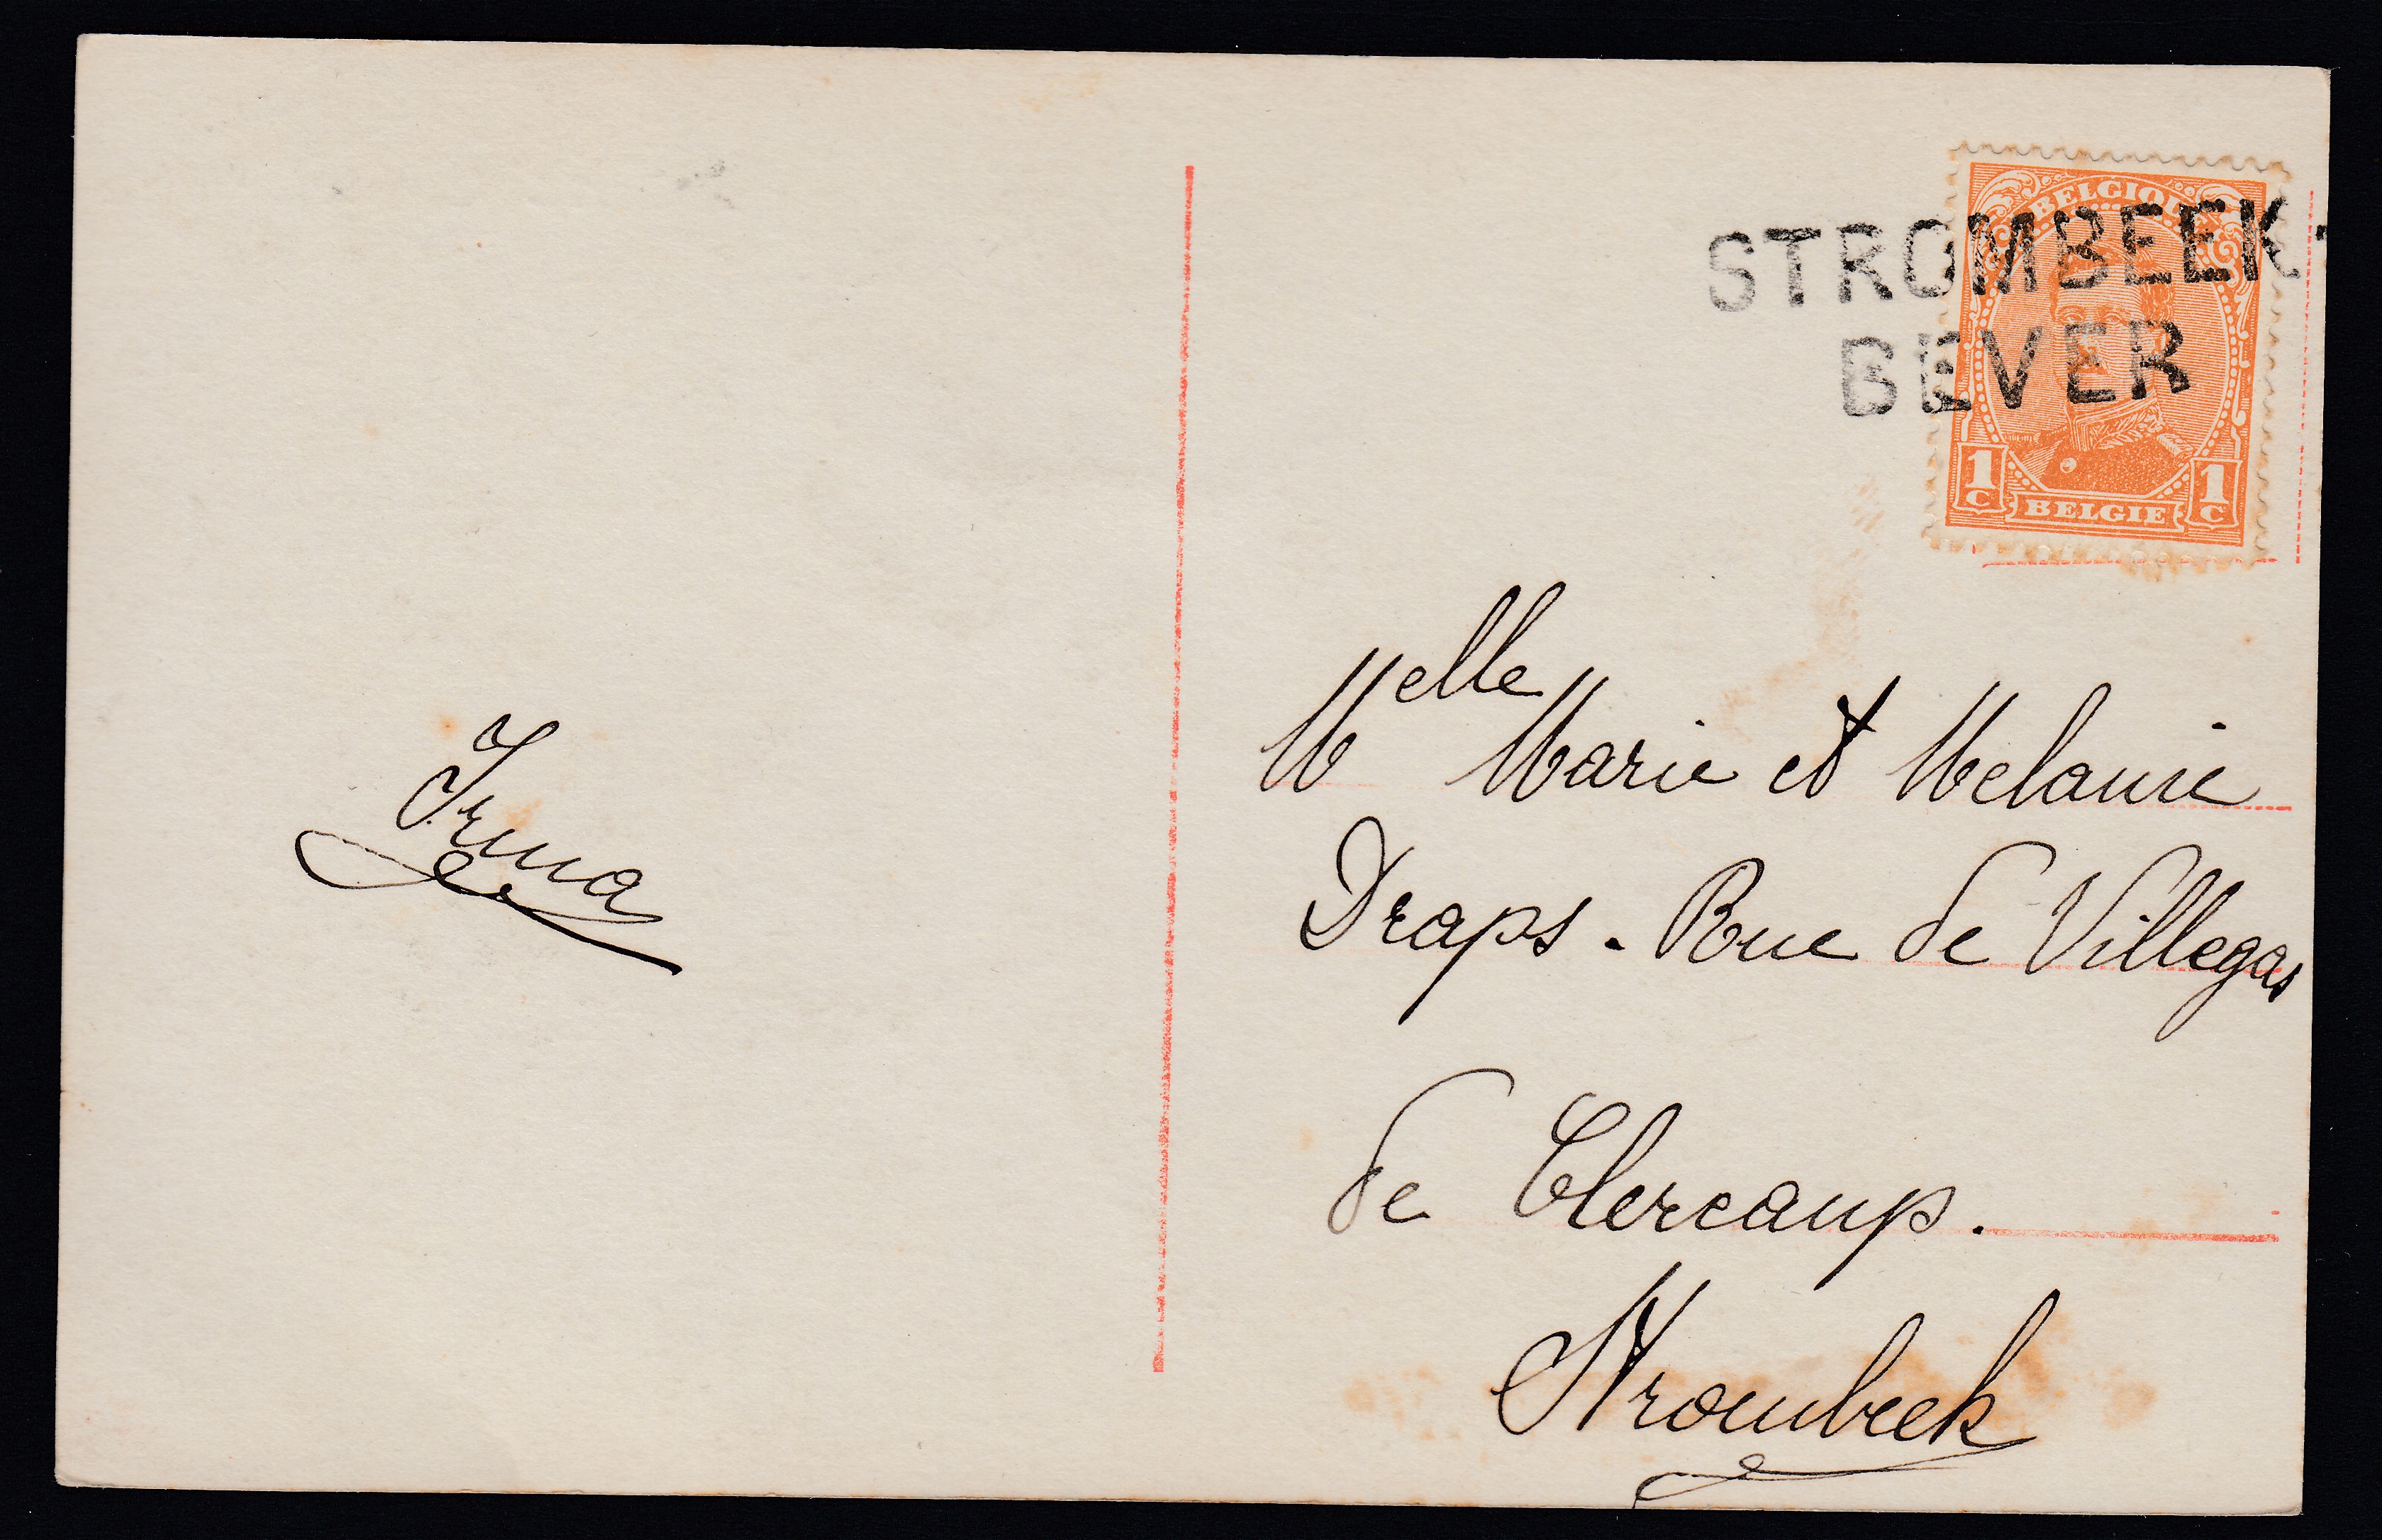 BELGIQUE
STROMBEEK-
BEVER
1 C BELGIE 1 C
Irma
Melle Marie et Melanie
Draps. Rue de Villegas
de Clercamp.
Strombeek